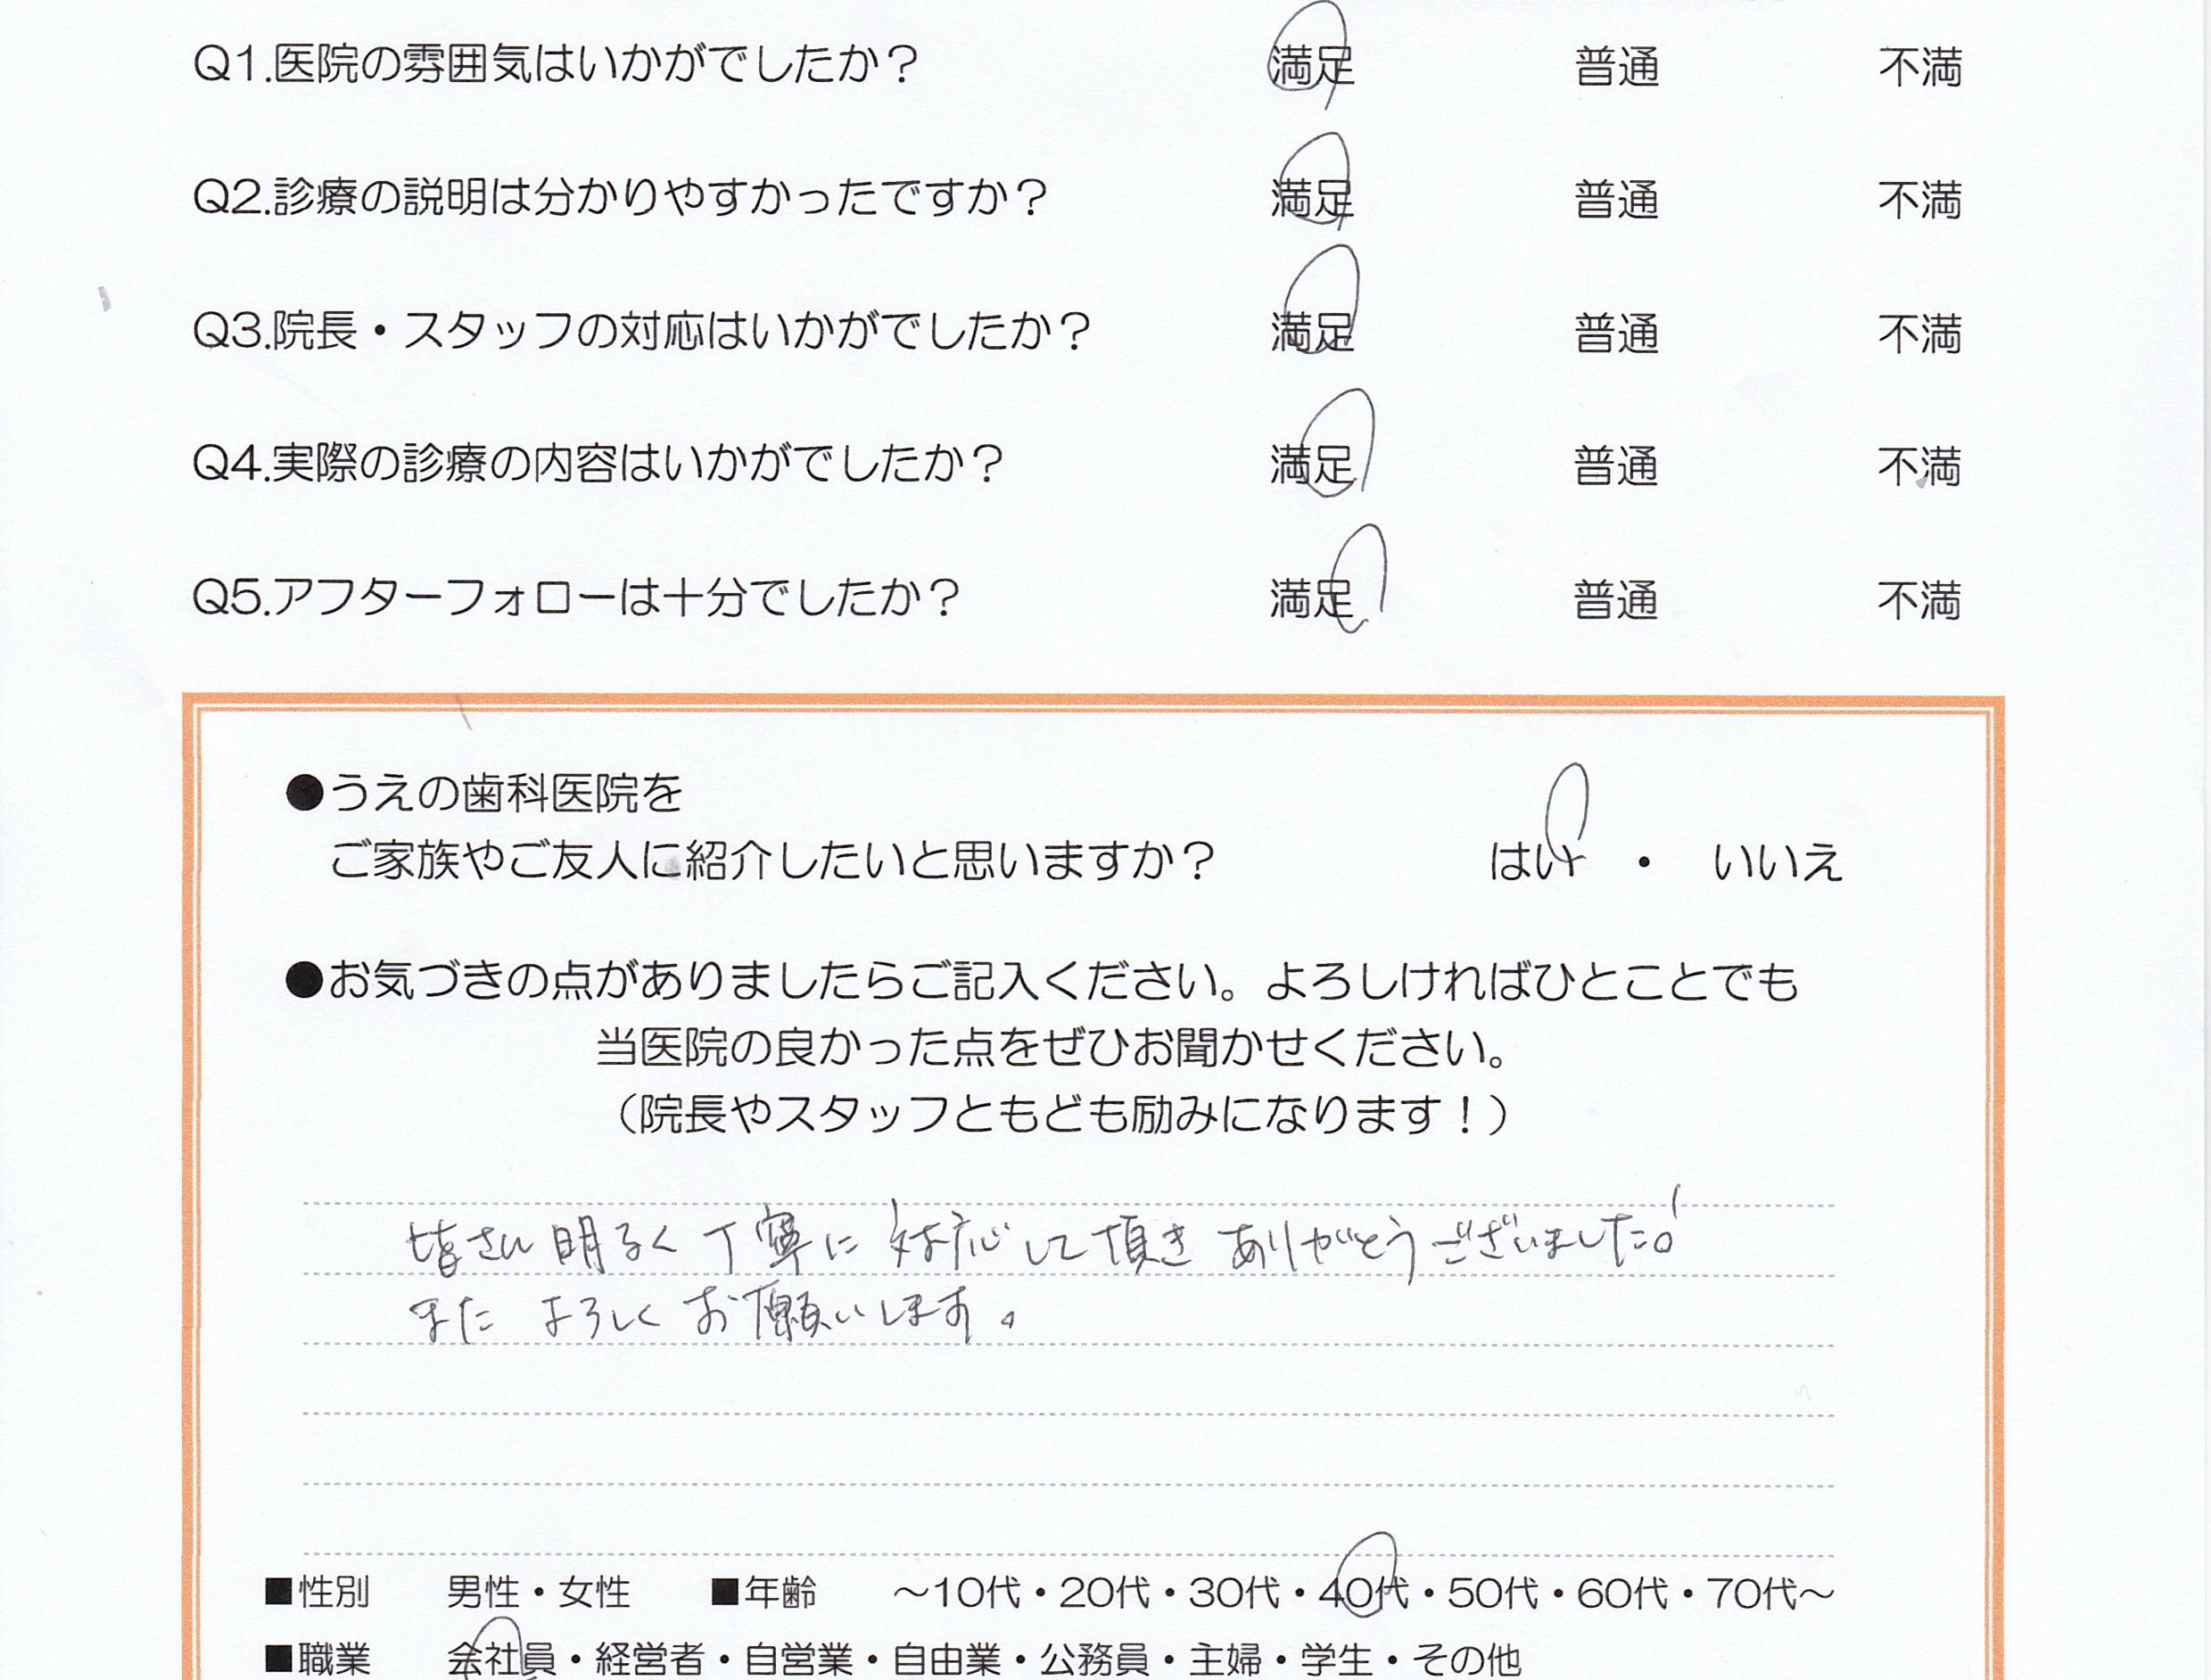 Q1.医院の雰囲気はいかがでしたか？ 満足 普通 不満
Q2.診療の説明は分かりやすかったですか？ 満足 普通 不満
Q3.院長・スタッフの対応はいかがでしたか？ 満足 普通 不満
Q4.実際の診療の内容はいかがでしたか？ 満足 普通 不満
Q5.アフターフォローは十分でしたか？ 満足 普通 不満
●うえの歯科医院を
ご家族やご友人に紹介したいと思いますか？ はい ・ いいえ
●お気づきの点がありましたらご記入ください。よろしければひとことでも
当医院の良かった点をぜひお聞かせください。
（院長やスタッフともども励みになります！）
皆さん明るく丁寧に対応して頂きありがとうございました!
また よろしくお願いします。
■性別 男性・女性 ■年齢 〜10代・20代・30代・40代・50代・60代・70代〜
■職業 会社員・経営者・自営業・自由業・公務員・主婦・学生・その他